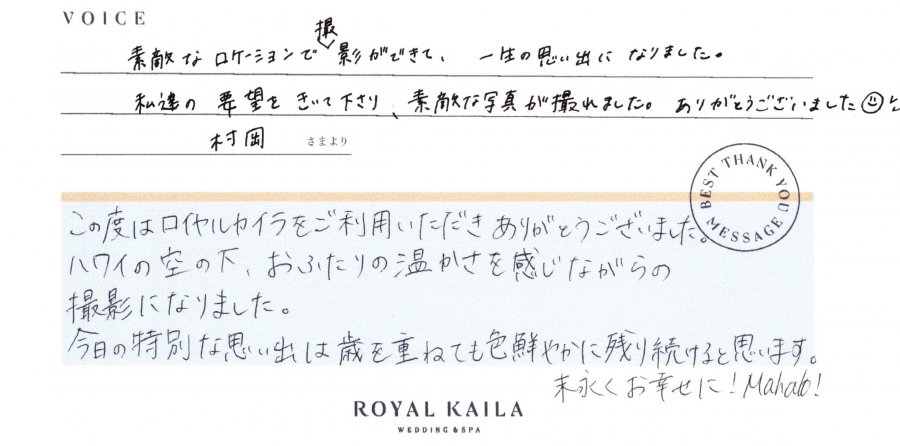 VOICE
素敵なロケーションで撮影ができて、一生の思い出になりました。
私達の要望をきいて下さり、素敵な写真が撮れました。ありがとうございました
村岡 さまより
BEST THANK YOU MESSAGE
この度はロイヤルカイラをご利用いただきありがとうございました。
ハワイの空の下、おふたりの温かさを感じながらの
撮影になりました。
今日の特別な思い出は歳を重ねても色鮮やかに残り続けると思います。
末永くお幸せに！Mahalo!
ROYAL KAILA
WEDDING & SPA